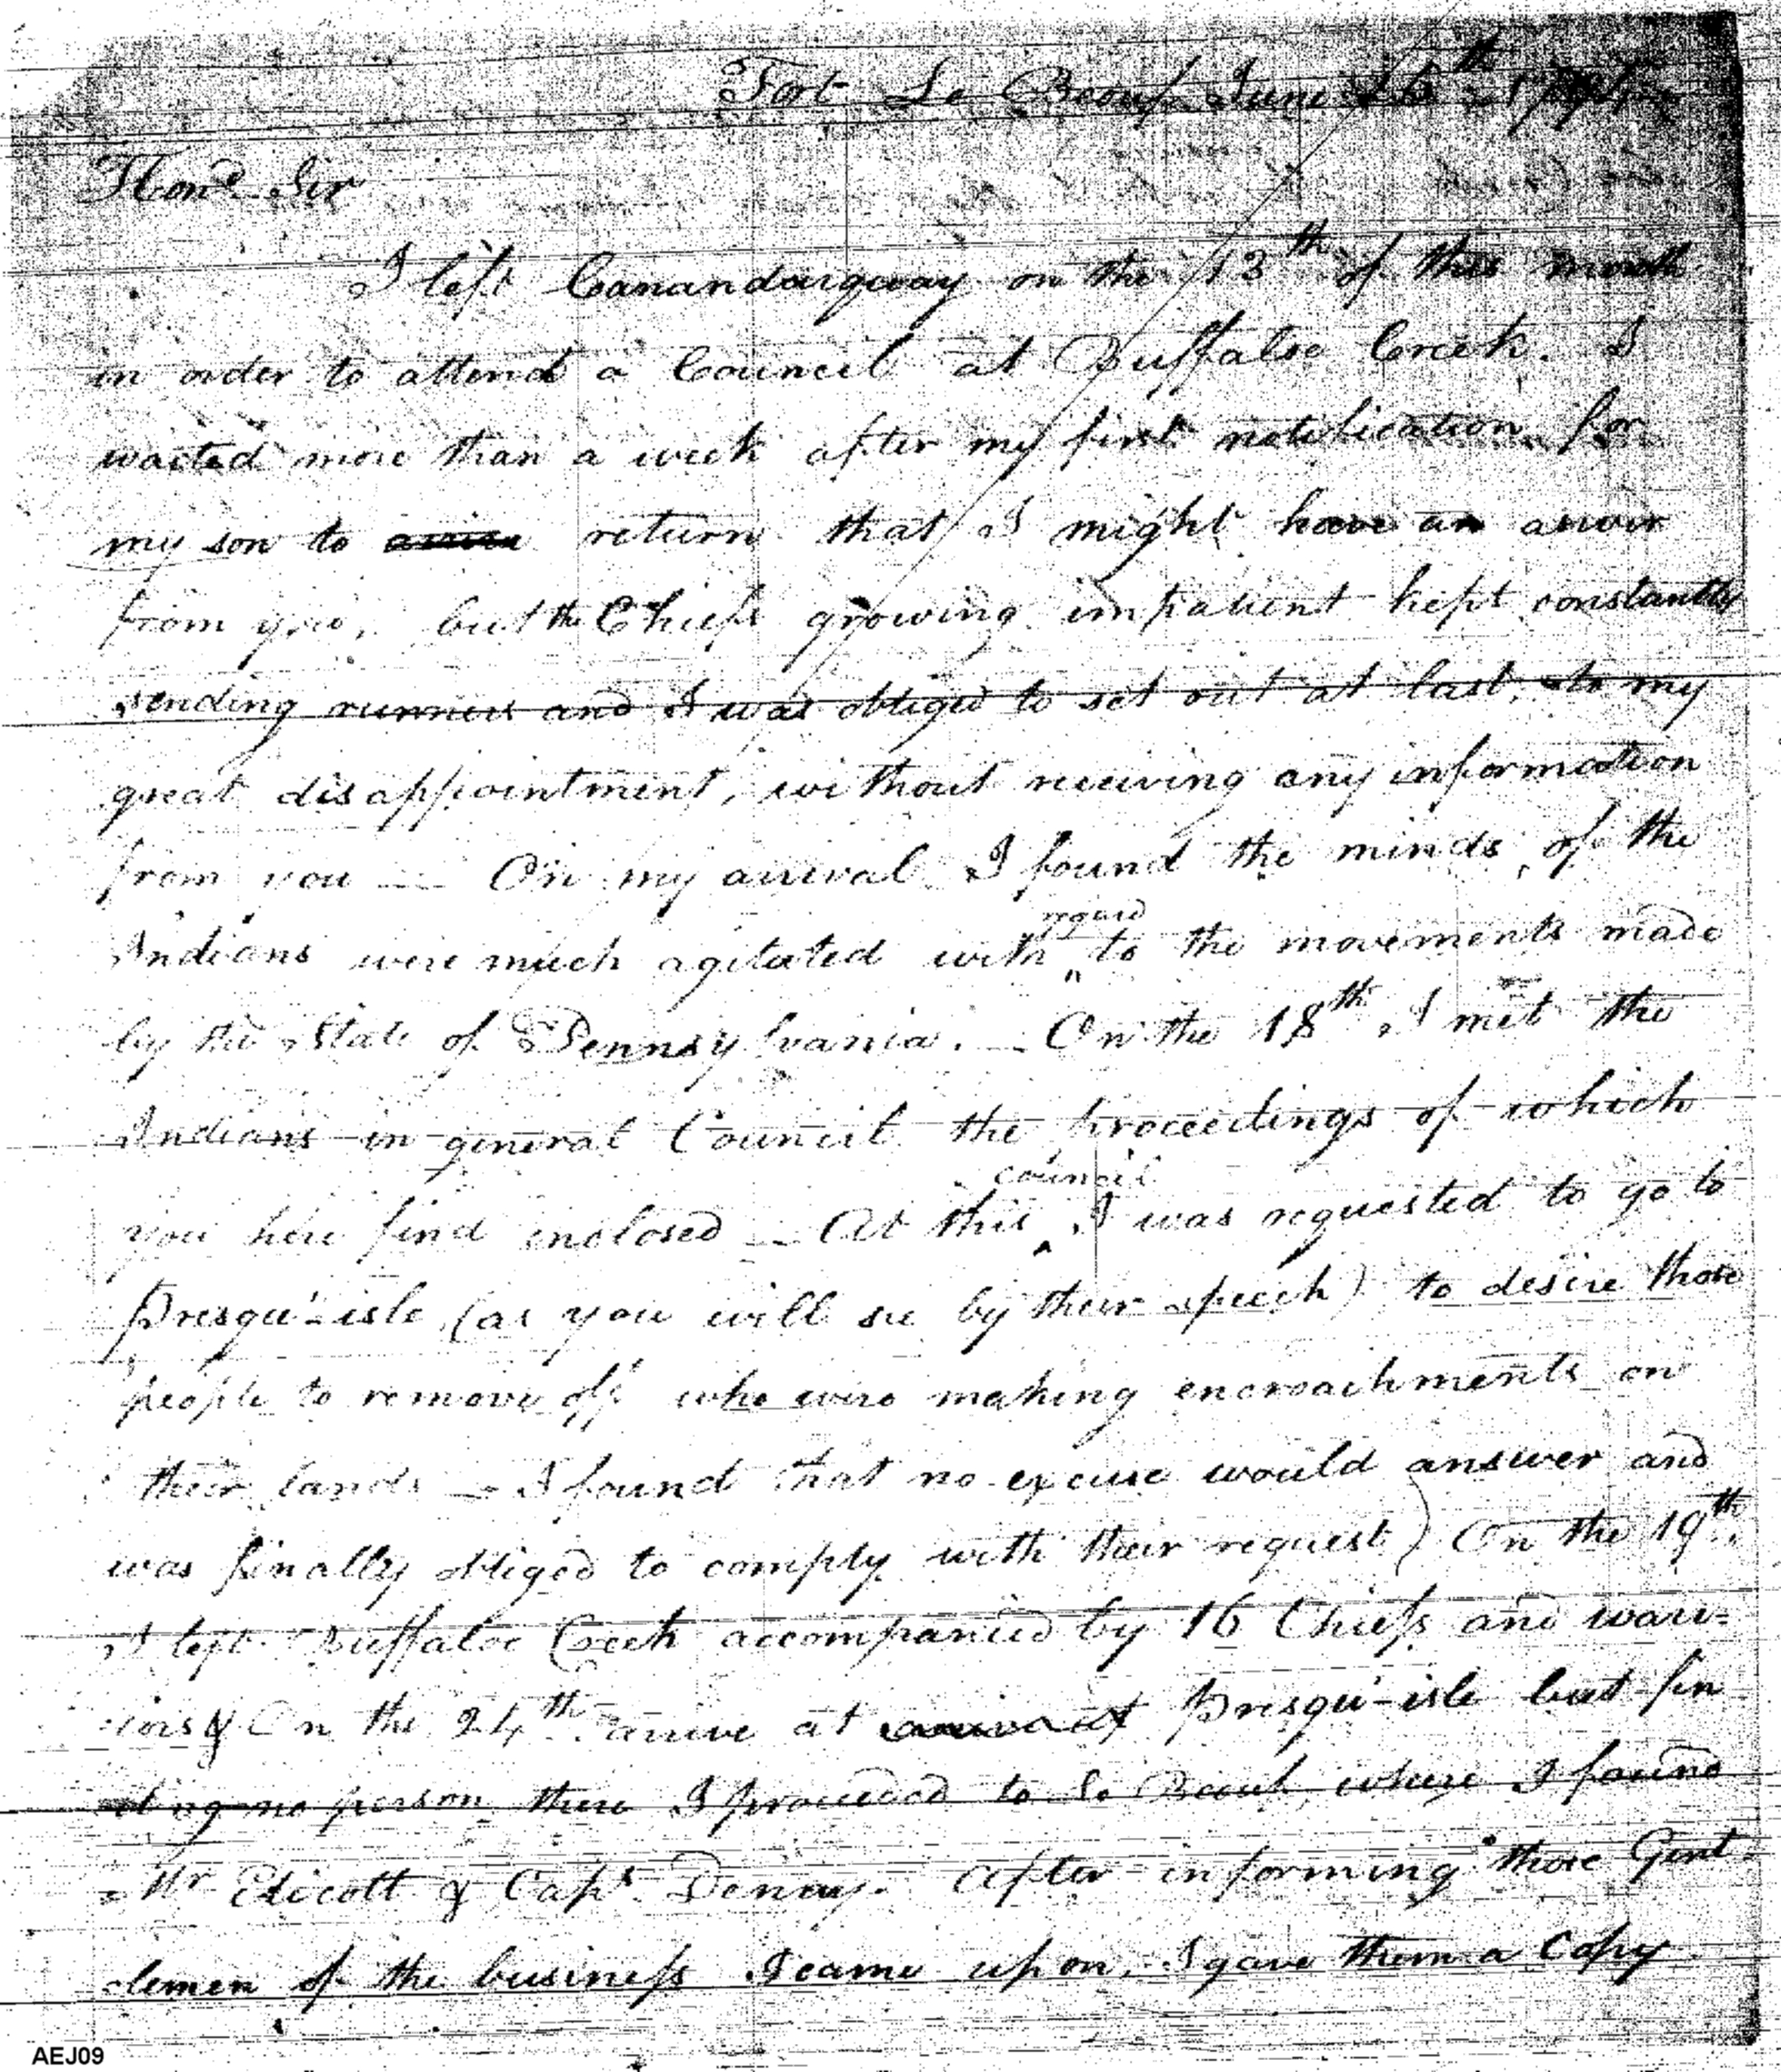 Fort Le Beouf June 26th 1794
Hond. Sir
I left Canandarquay on the 13th of this month
in order to attend a Council at Buffaloe Creek. I
waited more than a week after my first notification for
my son to return that I might have an answer
from you, but the Chiefs growing impatient kept constantly
sending runners and I was obliged to set out at last, to my
great disappointment, without receiving any information
from you — On my arrival I found the minds of the
Indians were much agitated with regard to the movements made
by the State of Pennsylvania. — On the 18th I met the
Indians in general Council the proceedings of which
you here find inclosed — At this council I was requested to go to
Presqu'-isle (as you will see by their speech) to desire those
people to remove off who were making encroachments on
their lands — I found that no excuse would answer and
was finally obliged to comply with their request) On the 19th
I left Buffaloe Creek accompanied by 16 Chiefs and warr=
=iors & On the 24th arrive at Presqu'-isle but fin
ding no person there I proceeded to Le Beouf, where I found
=Mr Elicott & Capt. Denny. After informing those Gent=
=lemen of the business I came upon, I gave them a Copy
AEJ09